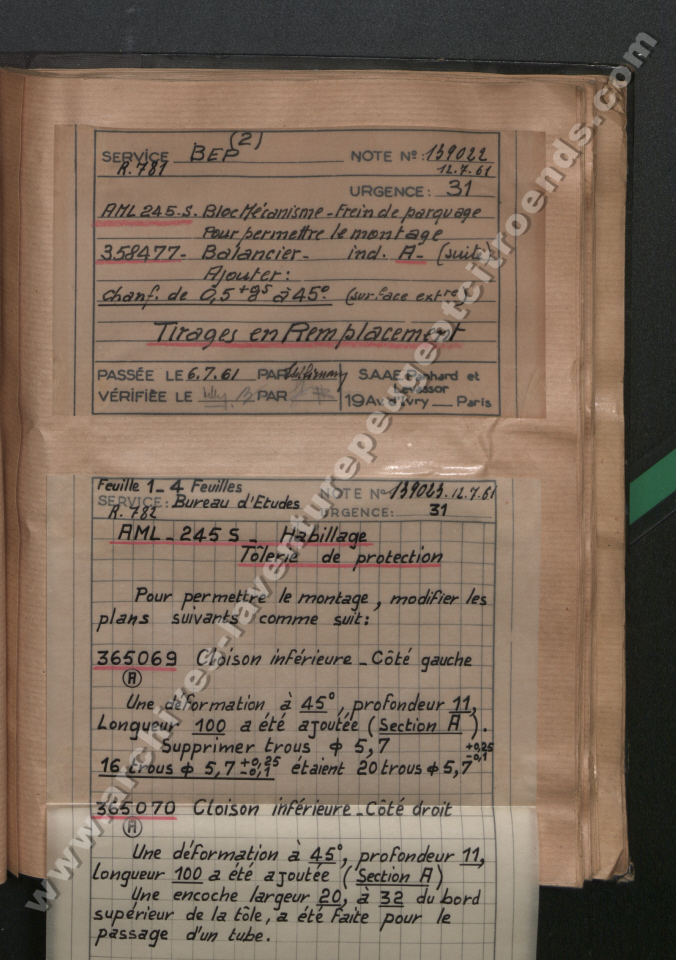 (2)
SERVICE BEP NOTE Nº: 139022
R. 781 12.7.61
URGENCE: 31
AML 245.S. Bloc Mécanisme - Frein de parquage
Pour permettre le montage
358477- Balancier- ind. A- (suit:)
Ajouter:
chanf. de 0,5 à 45° (surface extre)
Tirages en Remplacement
PASSÉE LE 6.7.61 PAR S.A.A.E Panhard et
Levassor
VÉRIFIÉE LE PAR 19 Av. d'Ivry __ Paris
Feuille 1_4 Feuilles NOTE Nº 139023. 12.7.61
SERVICE: Bureau d'Etudes URGENCE: 31
R. 782
AML _ 245 S _ Habillage
Tôlerie de protection
Pour permettre le montage, modifier les
plans suivants comme suit:
365069 Cloison inférieure _ Côté gauche
A
Une déformation à 45°, profondeur 11,
Longueur 100 a été ajoutée (Section A).
Supprimer trous ϕ 5,7 +0,25
16 trous ϕ 5,7 +0,25 -0,1 étaient 20 trous ϕ 5,7 -0,1
365070 Cloison inférieure _ Côté droit
A
Une déformation à 45°, profondeur 11,
Longueur 100 a été ajoutée (Section A)
Une encoche largeur 20, à 32 du bord
supérieur de la tôle, a été faite pour le
passage d'un tube.
www.archives-laventurepeugeotcitroends.com